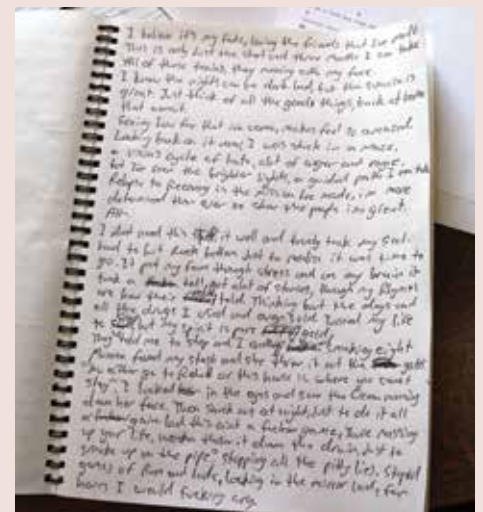 I believe it's my fate, losing the friends that I've
This is only just the start and three months I can take
All of these tears, they running down my face.
I know the nights can be dark but, but the sunrise is
great. Just think of all the goods things, back at
that
Seeing how far that I've come, makes feel so
Looking back on it now, I was stuck in a maze,
a vicious cycle of hate, alot of anger and rage,
but I've seen the brighter lights, a guided path I can take
Relapse to Recovery is the decision I've made, i'm more
determined than ever to show the people i'm great.
I don't need this it well and truely took my soul.
had to hit Rock bottom Just to realise it was time to
go. It put my fam though stress and on my brain it
took a toll, got alot of stories, though my Rhymes
are how their told. Thinking bout the days and
all the drugs I used and even sold. I used my life
to but my spirit is pure gold.
They told me to stop and I smoking eight
Mumma found my stash and she threw it out the gate
"its either go to Rehab or this house is where you won't
stay". I looked in the eyes and saw the tears running
down her face. Then snuck out at night, Just to do it all
again but this aint a game, Youre pissing
up your life, throw it down the drain, Just to
smoke up on the pipe" stopping all the pitty lies. Stupid
games of and , looking in the mirror
I would fucking cry